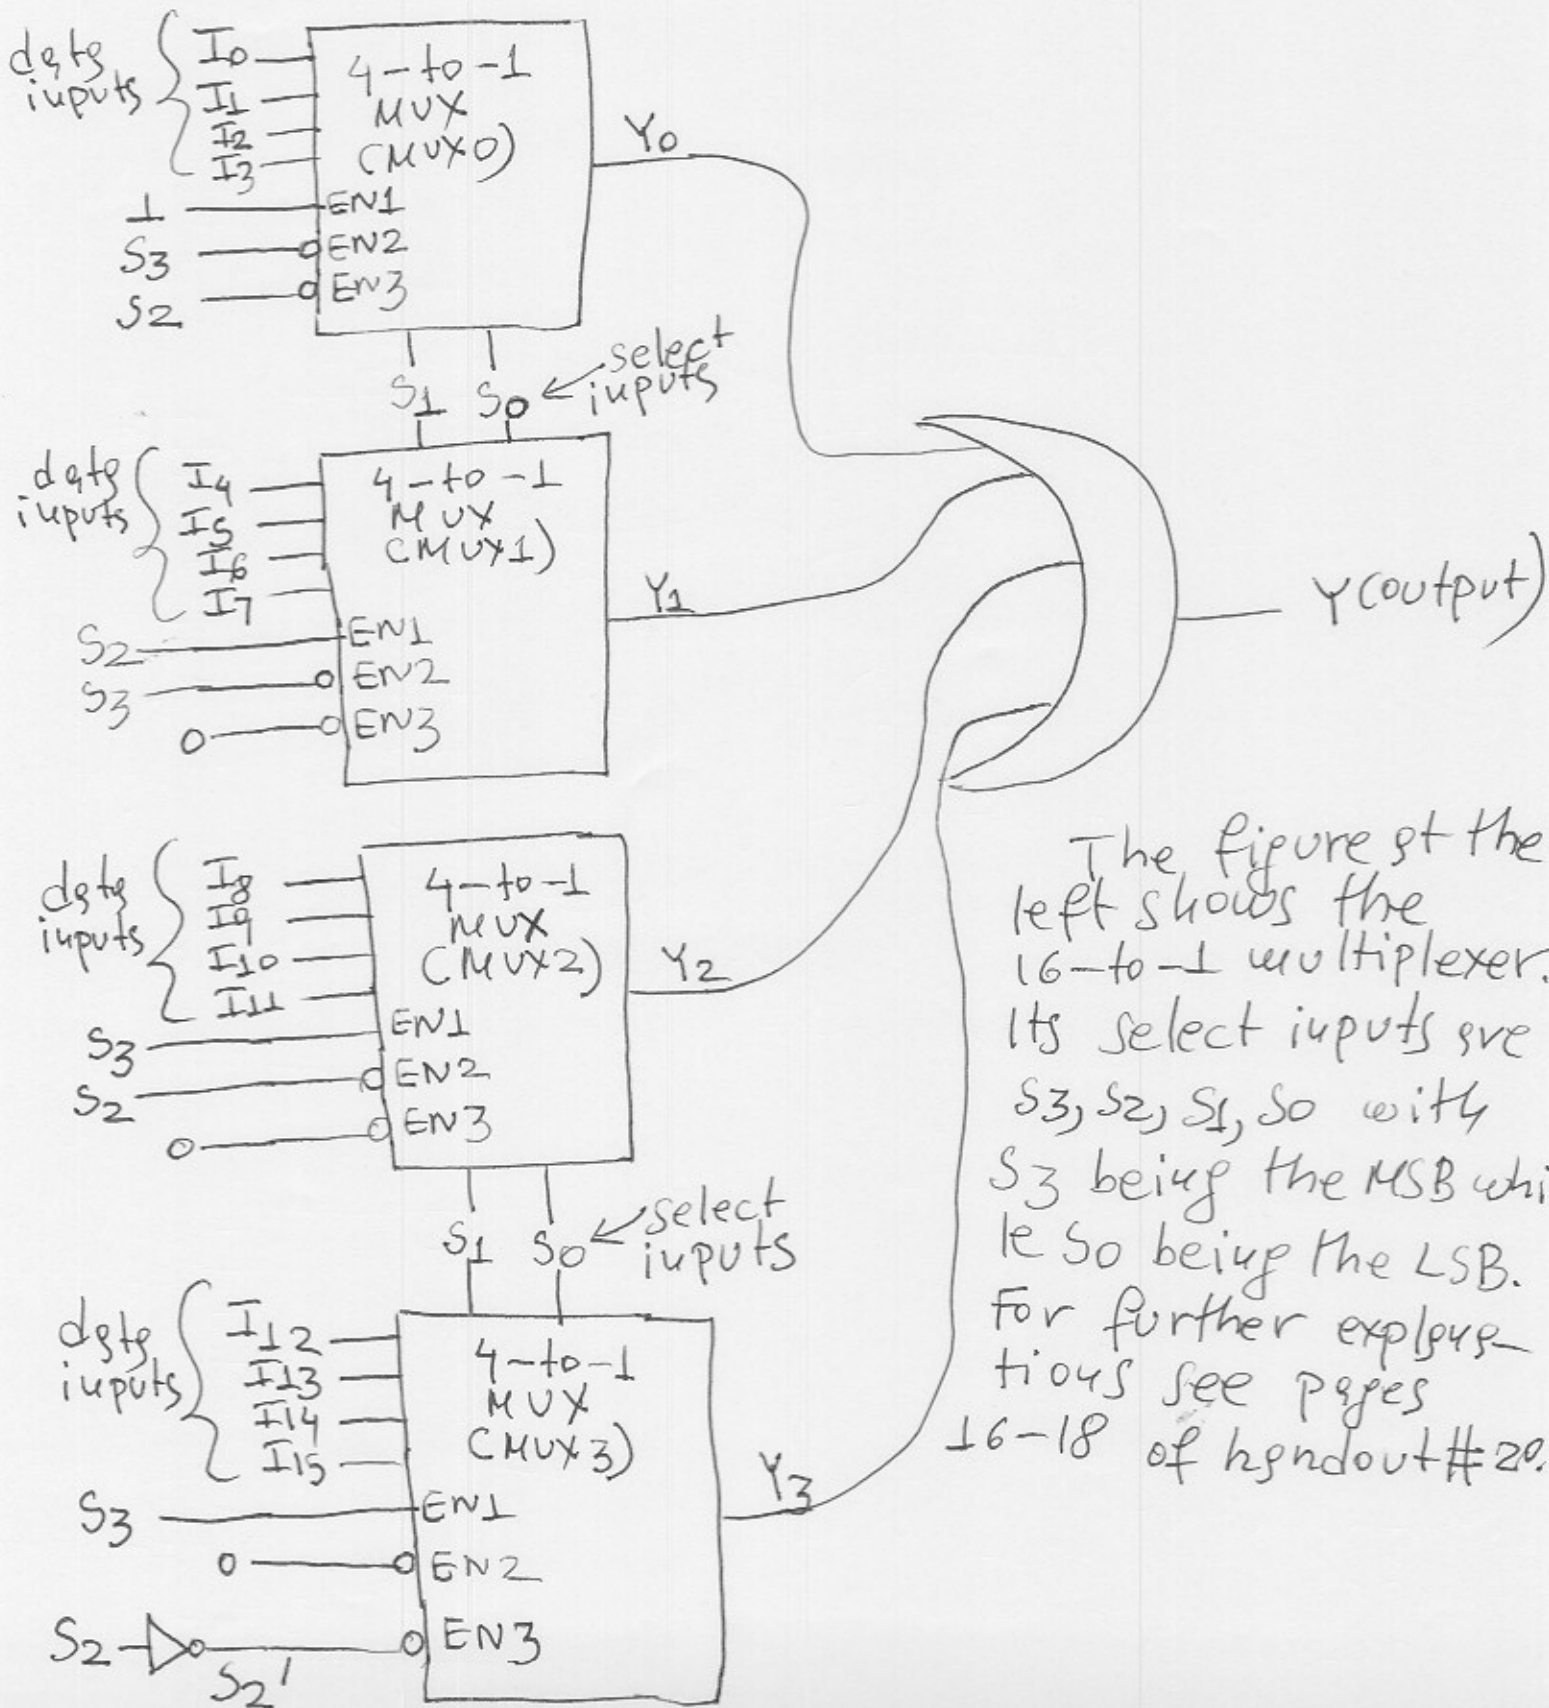 data
inputs
I0
I1
I2
I3
1
S3
S2
4-to-1
MUX
(MUX0)
EN1
EN2
EN3
Y0
S1 S0
select
inputs
data
inputs
I4
I5
I6
I7
S2
S3
0
4-to-1
MUX
(MUX1)
EN1
EN2
EN3
Y1
Y(output)
data
inputs
I8
I9
I10
I11
S3
S2
0
4-to-1
MUX
(MUX2)
EN1
EN2
EN3
Y2
S1 S0
select
inputs
data
inputs
I12
I13
I14
I15
S3
0
S2
S2'
4-to-1
MUX
(MUX3)
EN1
EN2
EN3
Y3
The figure at the
left shows the
16-to-1 multiplexer.
Its select inputs are
S3, S2, S1, S0 with
S3 being the MSB whi
le S0 being the LSB.
For further explana-
tions see pages
16-18 of handout #20.